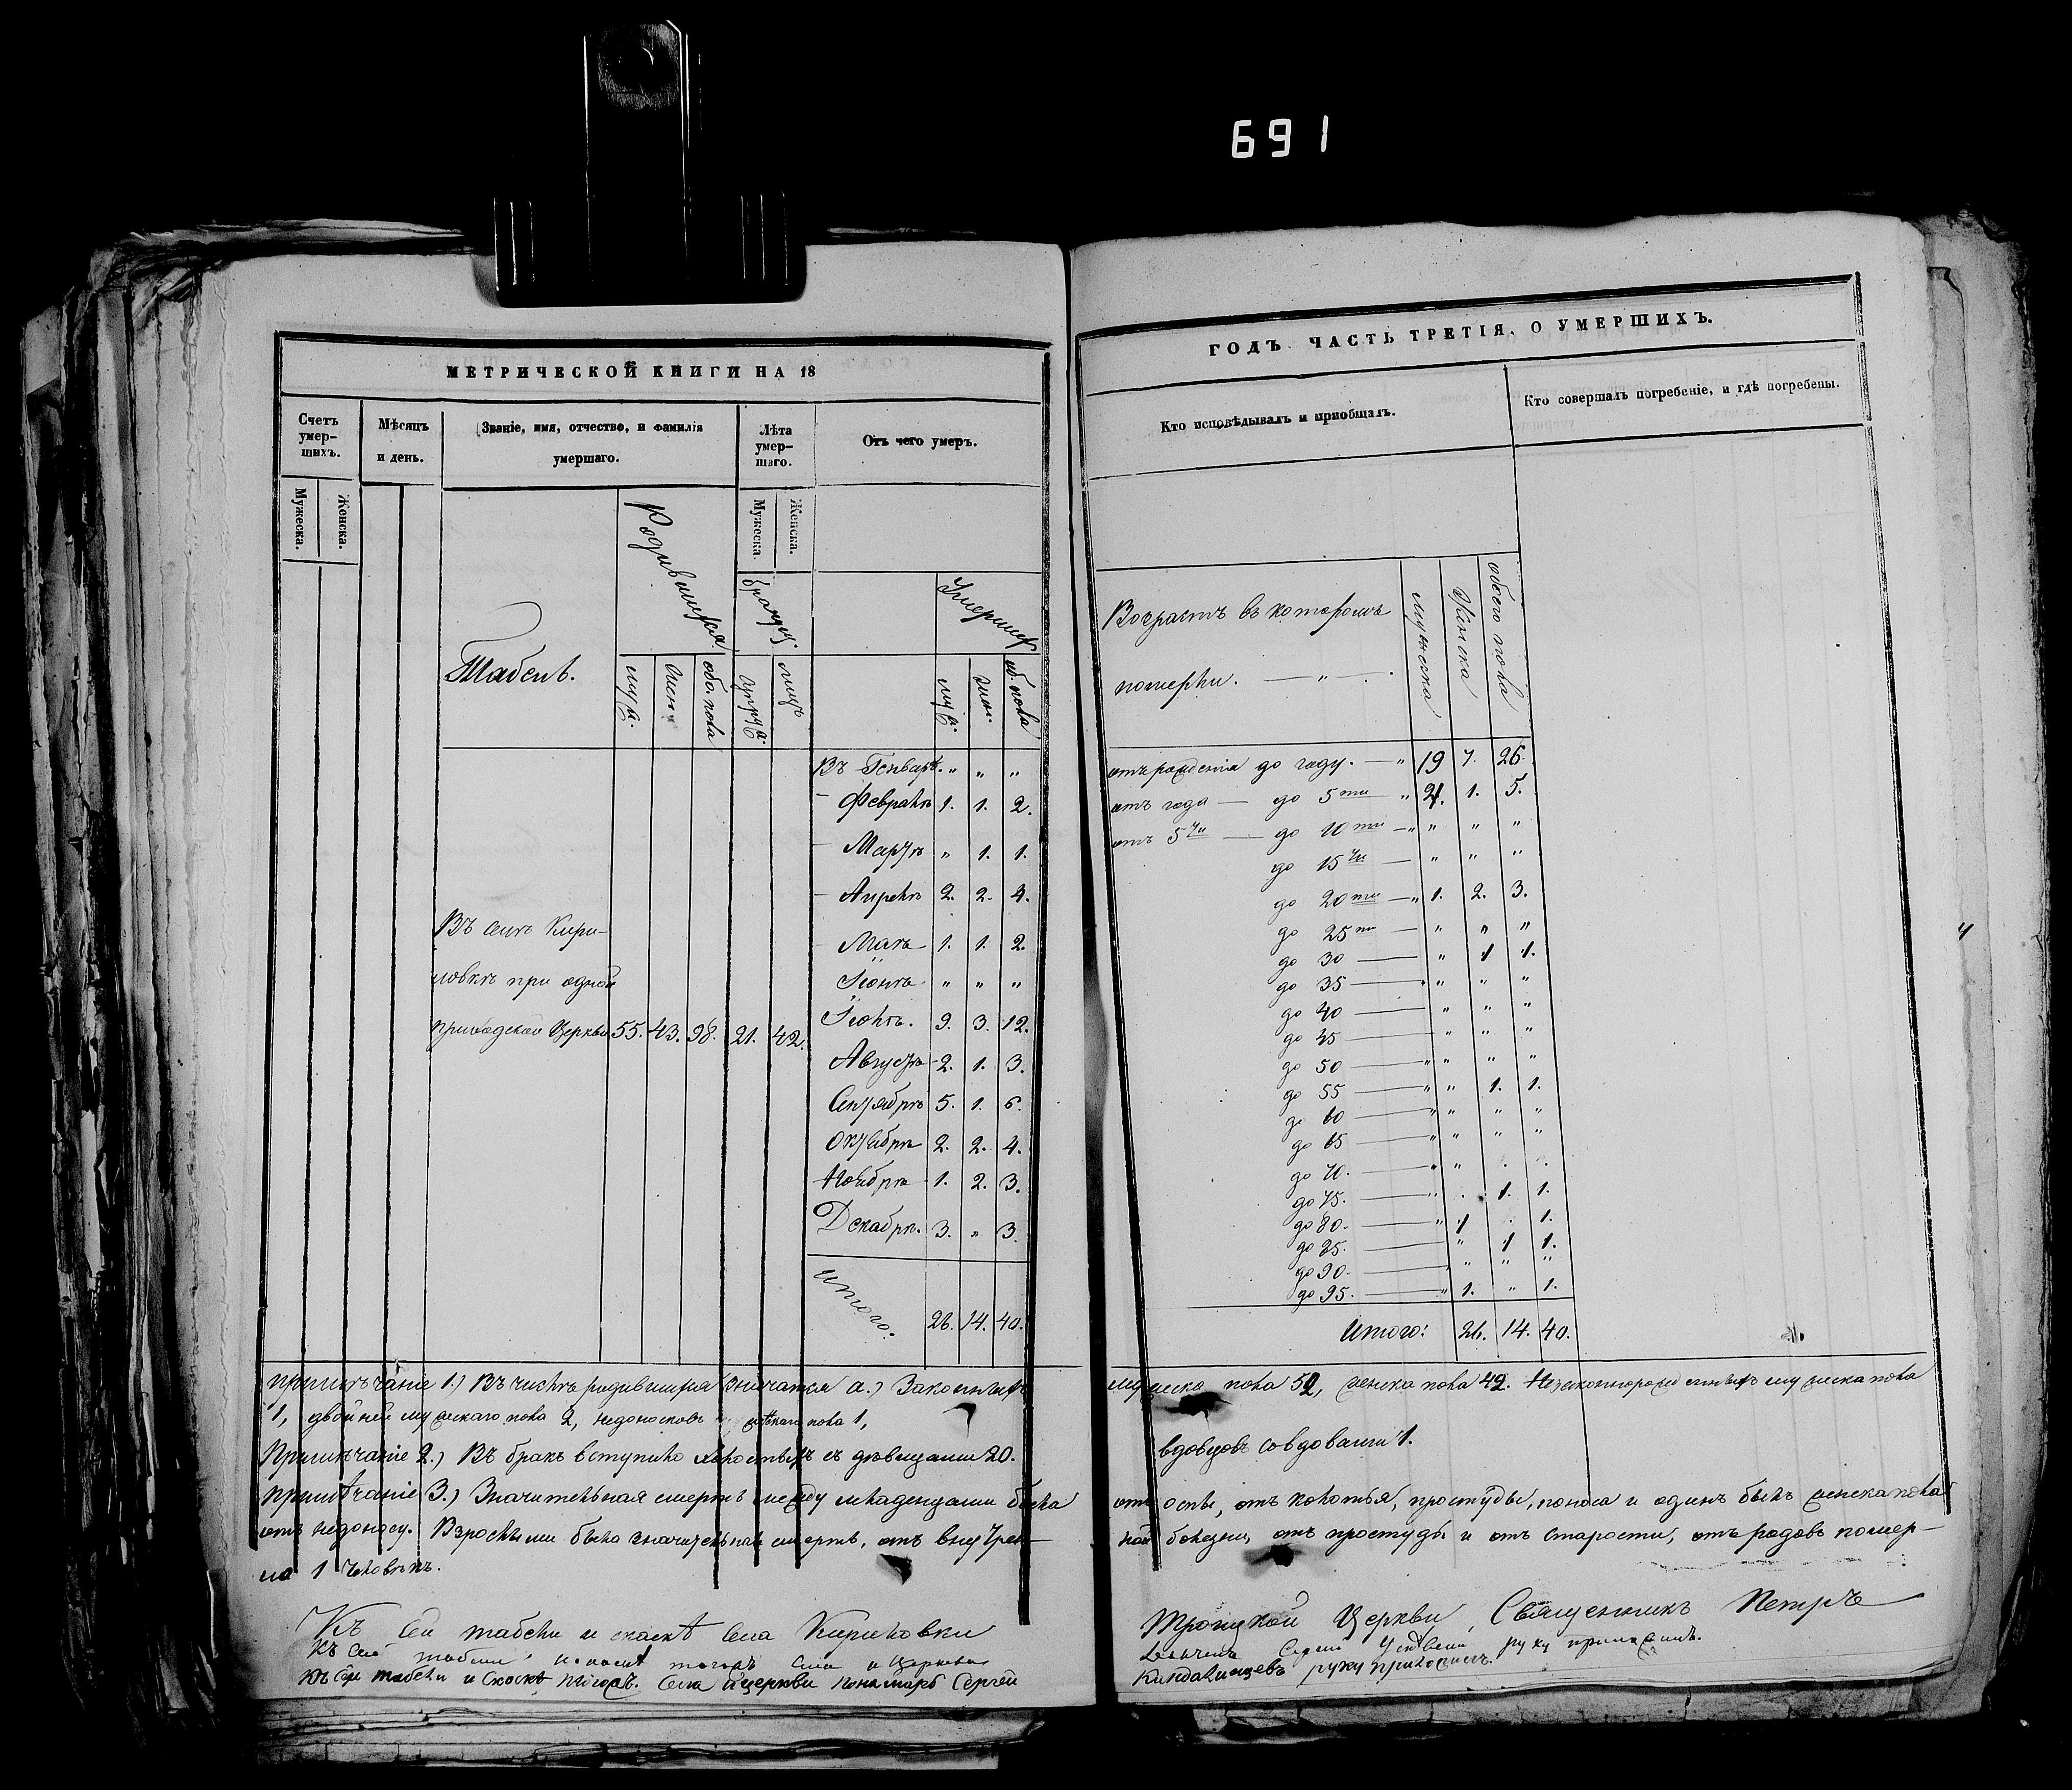 691
МЕТРИЧЕСКОЙ КНИГИ НА 18
Счетъ умер-шихъ.
Мужеска.
Женска.
Мѣсяцъ и день.
Званіе, имя, отчество, и фамилія умершаго.
Лѣта умер-шаго.
Мужеска.
Женска.
Отъ чего умеръ.
Табель.
Родившихся
муж.
жен.
обо. пола
браков.
супруж.
лицъ
Умерших
муж.
жен.
об. пола
Въ селѣ Кири-
ловкѣ при одной
приходской Церкви 55. 43. 98. 21. 42.
Въ Генварѣ. " " "
Февралѣ 1. 1. 2.
Мартѣ " 1. 1.
Апрелѣ 2. 2. 4.
Маѣ 1. 1. 2.
Іюнѣ " " "
Іюлѣ. 9. 3. 12.
Августѣ 2. 1. 3.
Сентябрѣ 5. 1. 6.
Октябрѣ 2. 2. 4.
Ноябрѣ 1. 2. 3.
Декабрѣ. 3. " 3.
Итого: 26. 14. 40.
Примѣчаніе 1.) Въ числѣ родившихся значатся а.) Законныхъ
1, двойней мужскаго пола 2, недоносковъ пола 1,
Примѣчаніе 2.) Въ бракъ вступило холостыхъ съ дѣвицами 20.
Примѣчаніе 3.) Значительная смерть между младенцами была
отъ недоносу. Взрослыми была значительная смерть, отъ внутрен-
ла 1 человѣкъ.
Къ сей табели и сказкѣ села Кириловки
Къ сей табели и сказкѣ тогожъ села и Церкви
Къ сей табели и сказкѣ тогожъ. села и церкви пономарь Сергей
ГОДЪ ЧАСТЬ ТРЕТІЯ, О УМЕРШИХЪ.
Кто исповѣдывалъ и пріобщалъ.
Кто совершалъ погребеніе, и гдѣ погребены.
Возрастъ въ которомъ
померли. — " —
мужеска
женска
обоего пола
отъ рожденія до году. — " 19 7. 26.
отъ года — до 5ти " 4. 1. 5.
отъ 5ти — до 10ти — " " " "
до 15ти — " " "
до 20ти — " 1. 2. 3.
до 25ти — " " "
до 30 — " 1 1.
до 35 — " " " "
до 40 — " " "
до 45 — " " "
до 50 — " " " "
до 55 — " " 1. 1.
до 60 — " " " "
до 65 — " " " "
до 70. — " " . .
до 75. — " . 1. 1.
до 80. — " 1 . 1.
до 85. — " 1 1.
до 90. — " " "
до 95. — " 1. " 1.
Итого: 26. 14. 40.
мужеска пола 52, женска пола 42. Незаконнорожденныхъ мужеска пола
вдовцовъ со вдовами 1.
отъ оспы, отъ колотья, простуды, поноса и одинъ былъ женска пола
ной болезни, отъ простуды и отъ старости, отъ родовъ помер-
Троицкой Церкви, Священникъ Петръ
руку приложилъ.
руку приложилъ.